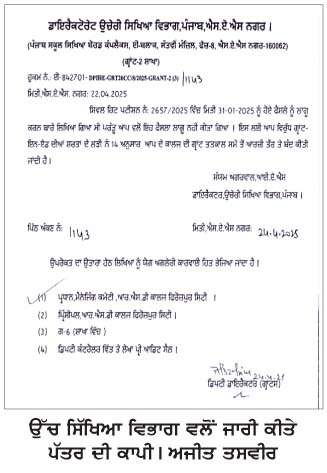 ਡਾਇਰੈਕਟੋਰੇਟ ਉਚੇਰੀ ਸਿਖਿਆ ਵਿਭਾਗ,ਪੰਜਾਬ,ਐਸ.ਏ.ਐਸ ਨਗਰ ।
(ਪੰਜਾਬ ਸਕੂਲ ਸਿਖਿਆ ਬੋਰਡ ਕੰਪਲੈਕਸ, ਈ-ਬਲਾਕ, ਸੱਤਵੀਂ ਮੰਜ਼ਿਲ, ਫੇਜ਼-8, ਐਸ.ਏ.ਐਸ ਨਗਰ-160062)
(ਗ੍ਰਾਂਟ-2 ਸ਼ਾਖਾ)
ਹੁਕਮ ਨੰ: ਈ-842701-DPIHE-GRT20CC/8/2025-GRANT-2 (3) /1143
ਮਿਤੀ,ਐਸ.ਏ.ਐਸ ਨਗਰ: 22.04.2025
ਸਿਵਲ ਰਿਟ ਪਟੀਸ਼ਨ ਨੰ: 2657/2025 ਵਿੱਚ ਮਿਤੀ 31-01-2025 ਨੂੰ ਹੋਏ ਫੈਸਲੇ ਨੂੰ ਲਾਗੂ
ਕਰਨ ਬਾਰੇ ਲਿਖਿਆ ਗਿਆ ਸੀ ਪਰੰਤੂ ਆਪ ਵਲੋਂ ਇਹ ਫੈਸਲਾ ਲਾਗੂ ਨਹੀਂ ਕੀਤਾ ਗਿਆ । ਇਸ ਲਈ ਆਪ ਵਿਰੁੱਧ ਗ੍ਰਾਂਟ-
ਇਨ-ਏਡ ਦੀਆਂ ਸ਼ਰਤਾਂ ਦੇ ਲੜੀ ਨੰ 14 ਅਨੁਸਾਰ ਆਪ ਦੇ ਕਾਲਜ ਦੀ ਗ੍ਰਾਂਟ ਤਤਕਾਲ ਸਮੇਂ ਤੋਂ ਆਰਜ਼ੀ ਤੌਰ ਤੇ ਬੰਦ ਕੀਤੀ
ਜਾਂਦੀ ਹੈ ।
ਸੰਯਮ ਅਗਰਵਾਲ,ਆਈ.ਏ.ਐਸ
ਡਾਇਰੈਕਟਰ,ਉਚੇਰੀ ਸਿਖਿਆ ਵਿਭਾਗ,ਪੰਜਾਬ ।
ਪਿੱਠ ਅੰਕਣ ਨੰ: /1143 ਮਿਤੀ,ਐਸ.ਏ.ਐਸ ਨਗਰ: 24-4-2025
ਉਪਰੋਕਤ ਦਾ ਉਤਾਰਾ ਹੇਠ ਲਿਖਿਆਂ ਨੂੰ ਯੋਗ ਅਗਲੇਰੀ ਕਾਰਵਾਈ ਹਿਤ ਭੇਜਿਆ ਜਾਂਦਾ ਹੈ ।
(1) ਪ੍ਰਧਾਨ,ਮੈਨੇਜਿੰਗ ਕਮੇਟੀ ,ਆਰ.ਐਸ.ਡੀ ਕਾਲਜ ਫਿਰੋਜ਼ਪੁਰ ਸਿਟੀ ।
(2) ਪ੍ਰਿੰਸੀਪਲ,ਆਰ.ਐਸ.ਡੀ ਕਾਲਜ ਫਿਰੋਜ਼ਪੁਰ ਸਿਟੀ ।
(3) ਗ-6 (ਸ਼ਾਖਾ ਵਿੱਚ)
(4) ਡਿਪਟੀ ਕੰਟਰੋਲਰ ਵਿੱਤ ਤੇ ਲੇਖਾ ਪ੍ਰੀ ਆਡਿਟ ਸੈਲ ।
ਡਿਪਟੀ ਡਾਇਰੈਕਟਰ (ਗ੍ਰਾਂਟਸ)
ਉੱਚ ਸਿੱਖਿਆ ਵਿਭਾਗ ਵਲੋਂ ਜਾਰੀ ਕੀਤੇ
ਪੱਤਰ ਦੀ ਕਾਪੀ। ਅਜੀਤ ਤਸਵੀਰ